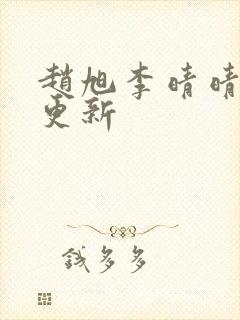 趙旭李晴晴
更新
錢多多